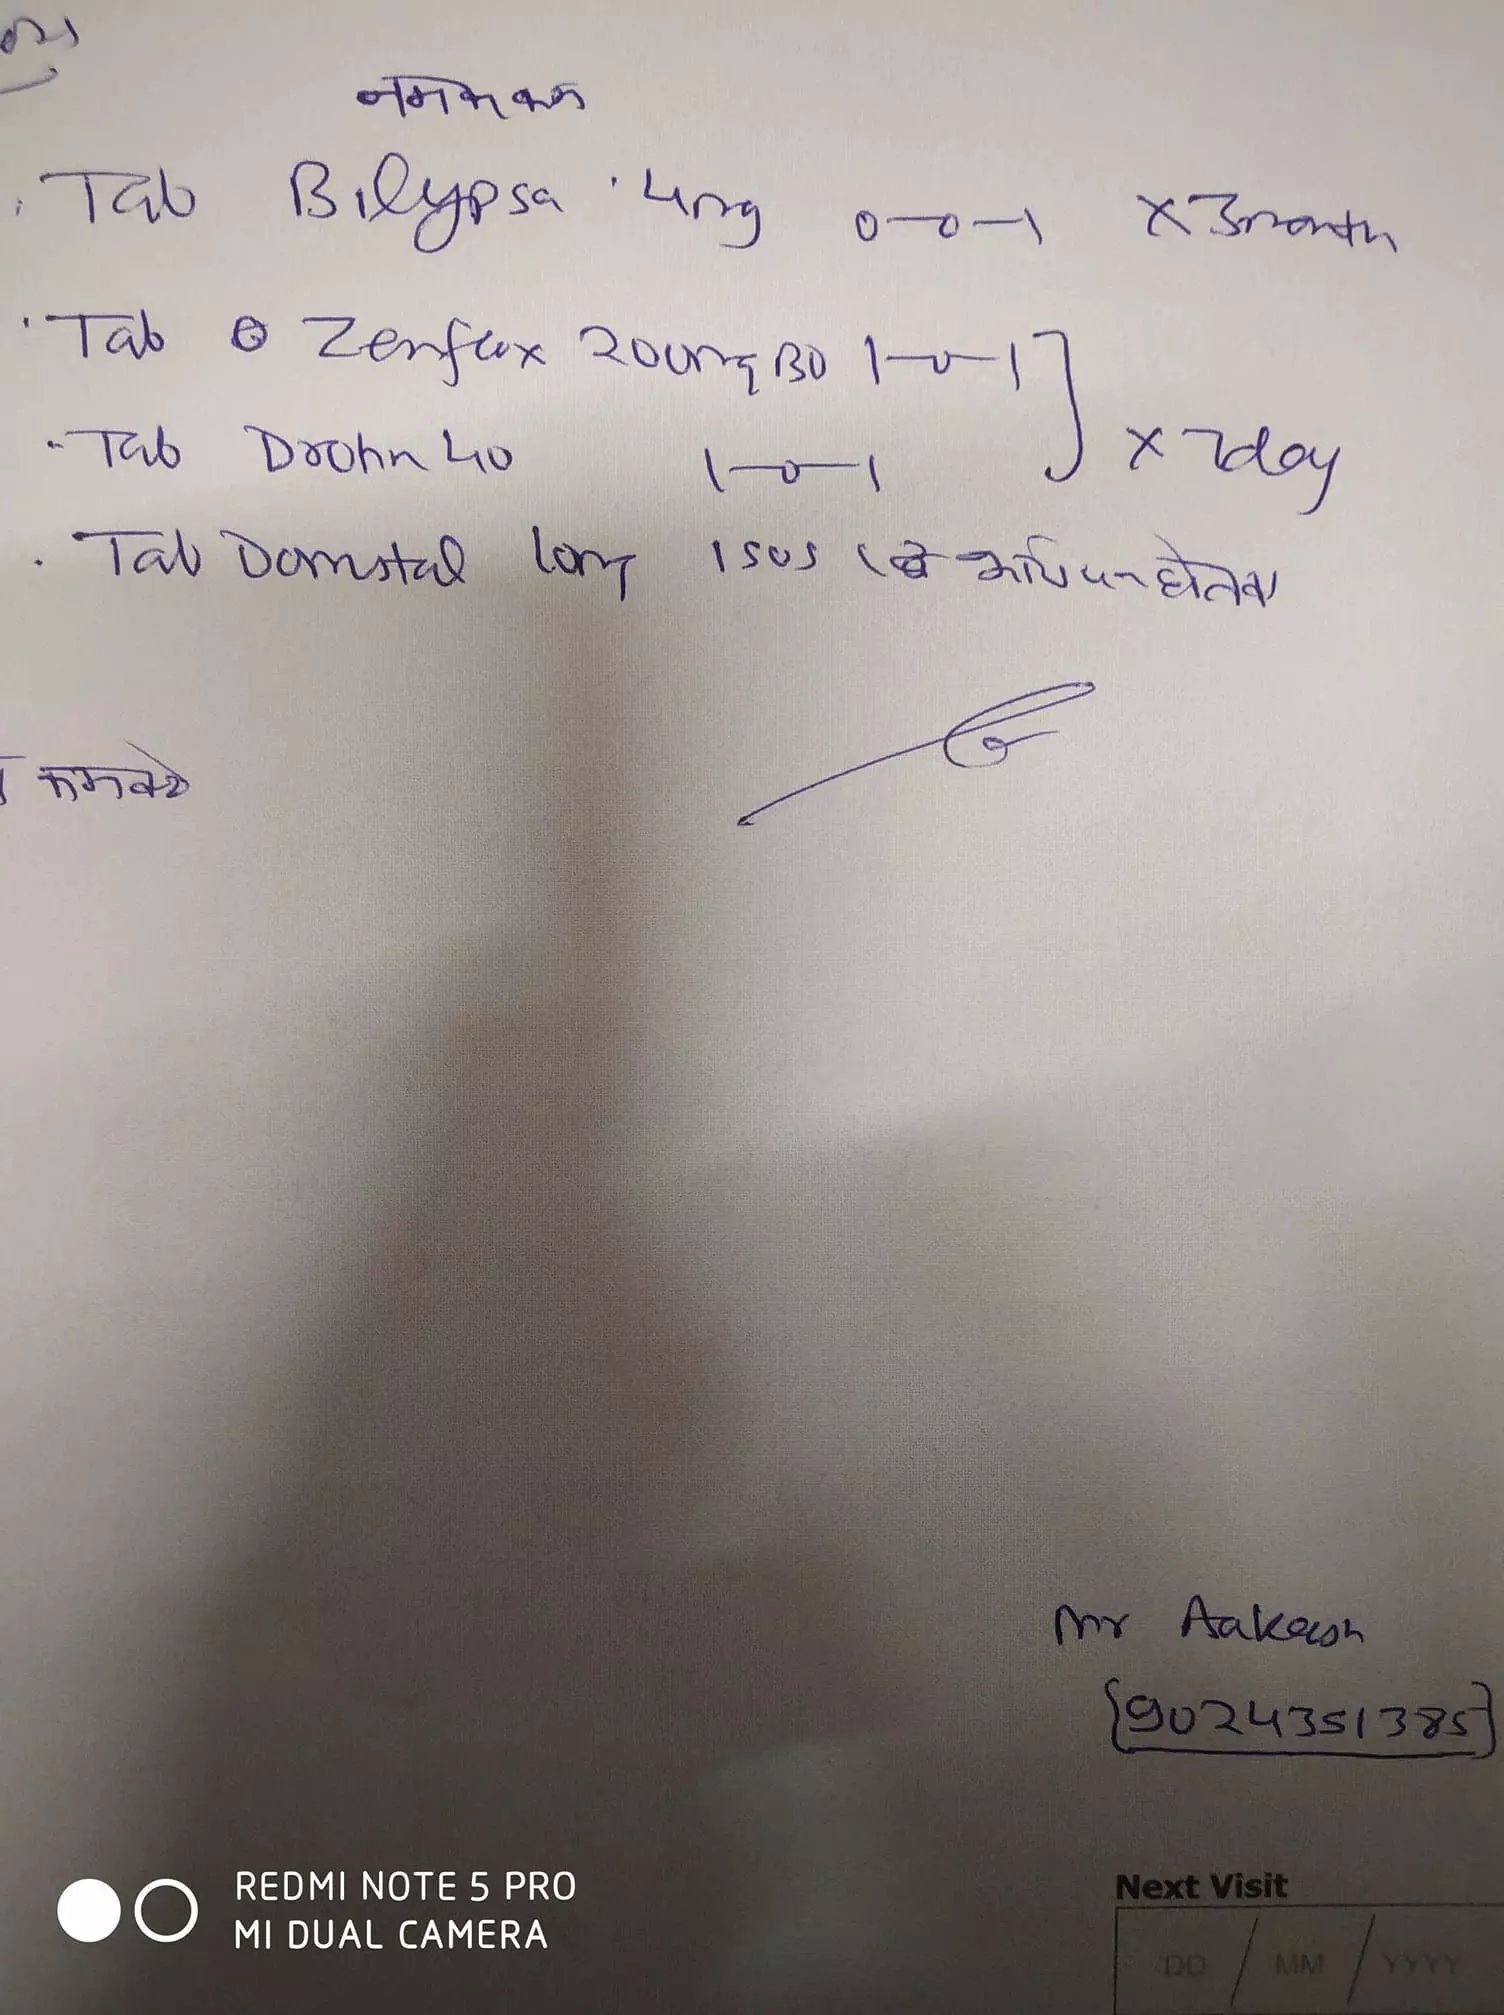 नमक कम
Tab Bilypsa 4mg 0-0-1 x 3month
Tab Zenflox 200mg BD 1-0-1
Tab Drohn 40 1-0-1 x 7day
Tab Domstal 10mg 1 SOS
कम करे
Mr Aakash
{9024351385}
REDMI NOTE 5 PRO
MI DUAL CAMERA
Next Visit
DD / MM / YYYY